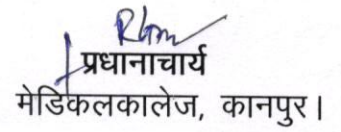 प्रधानाचार्य
मेडिकलकालेज, कानपुर।